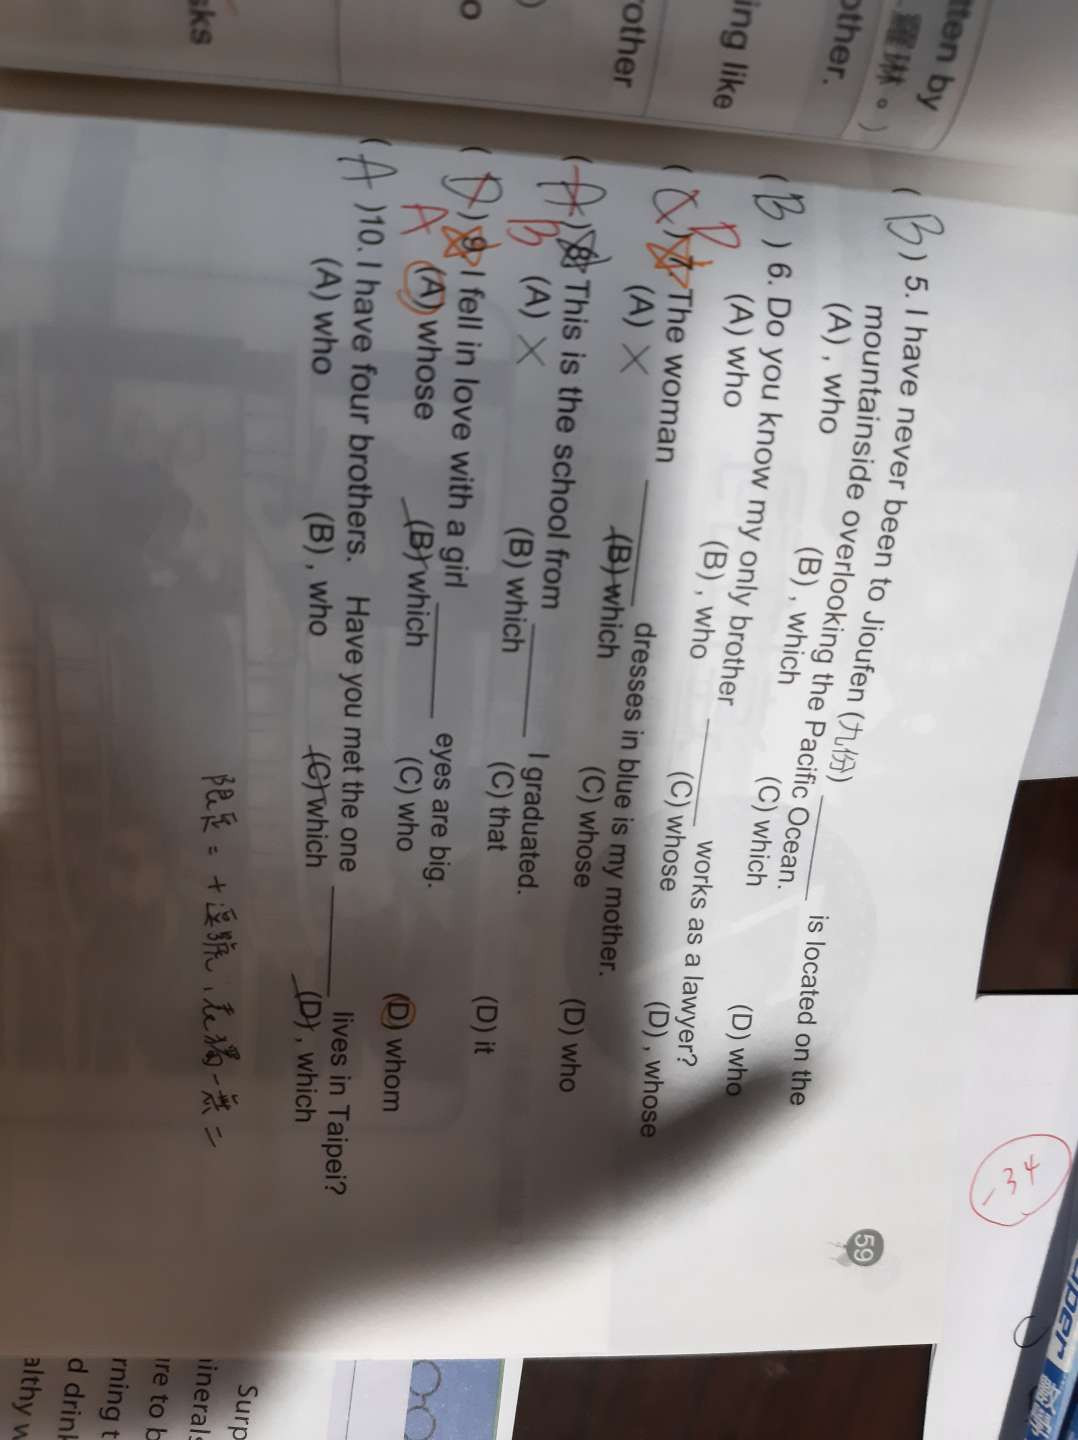 tten by
琳。)
other.
ing like
other
o
sks
(B) 5. I have never been to Jioufen (九份) ______ is located on the
mountainside overlooking the Pacific Ocean.
(A) , who (B) , which (C) which (D) who
(B) 6. Do you know my only brother ______ works as a lawyer?
(A) who (B) , who (C) whose (D) , whose
( ) 7. The woman ______ dresses in blue is my mother.
D
(A) × (B) which (C) whose (D) who
(A) 8. This is the school from ______ I graduated.
B
(A) × (B) which (C) that (D) it
(D) 9. I fell in love with a girl ______ eyes are big.
A
(A) whose (B) which (C) who (D) whom
(A) 10. I have four brothers. Have you met the one ______ lives in Taipei?
(A) who (B) , who (C) which (D) , which
59
-34
Surp
inerals
re to b
rning t
d drin
althy w